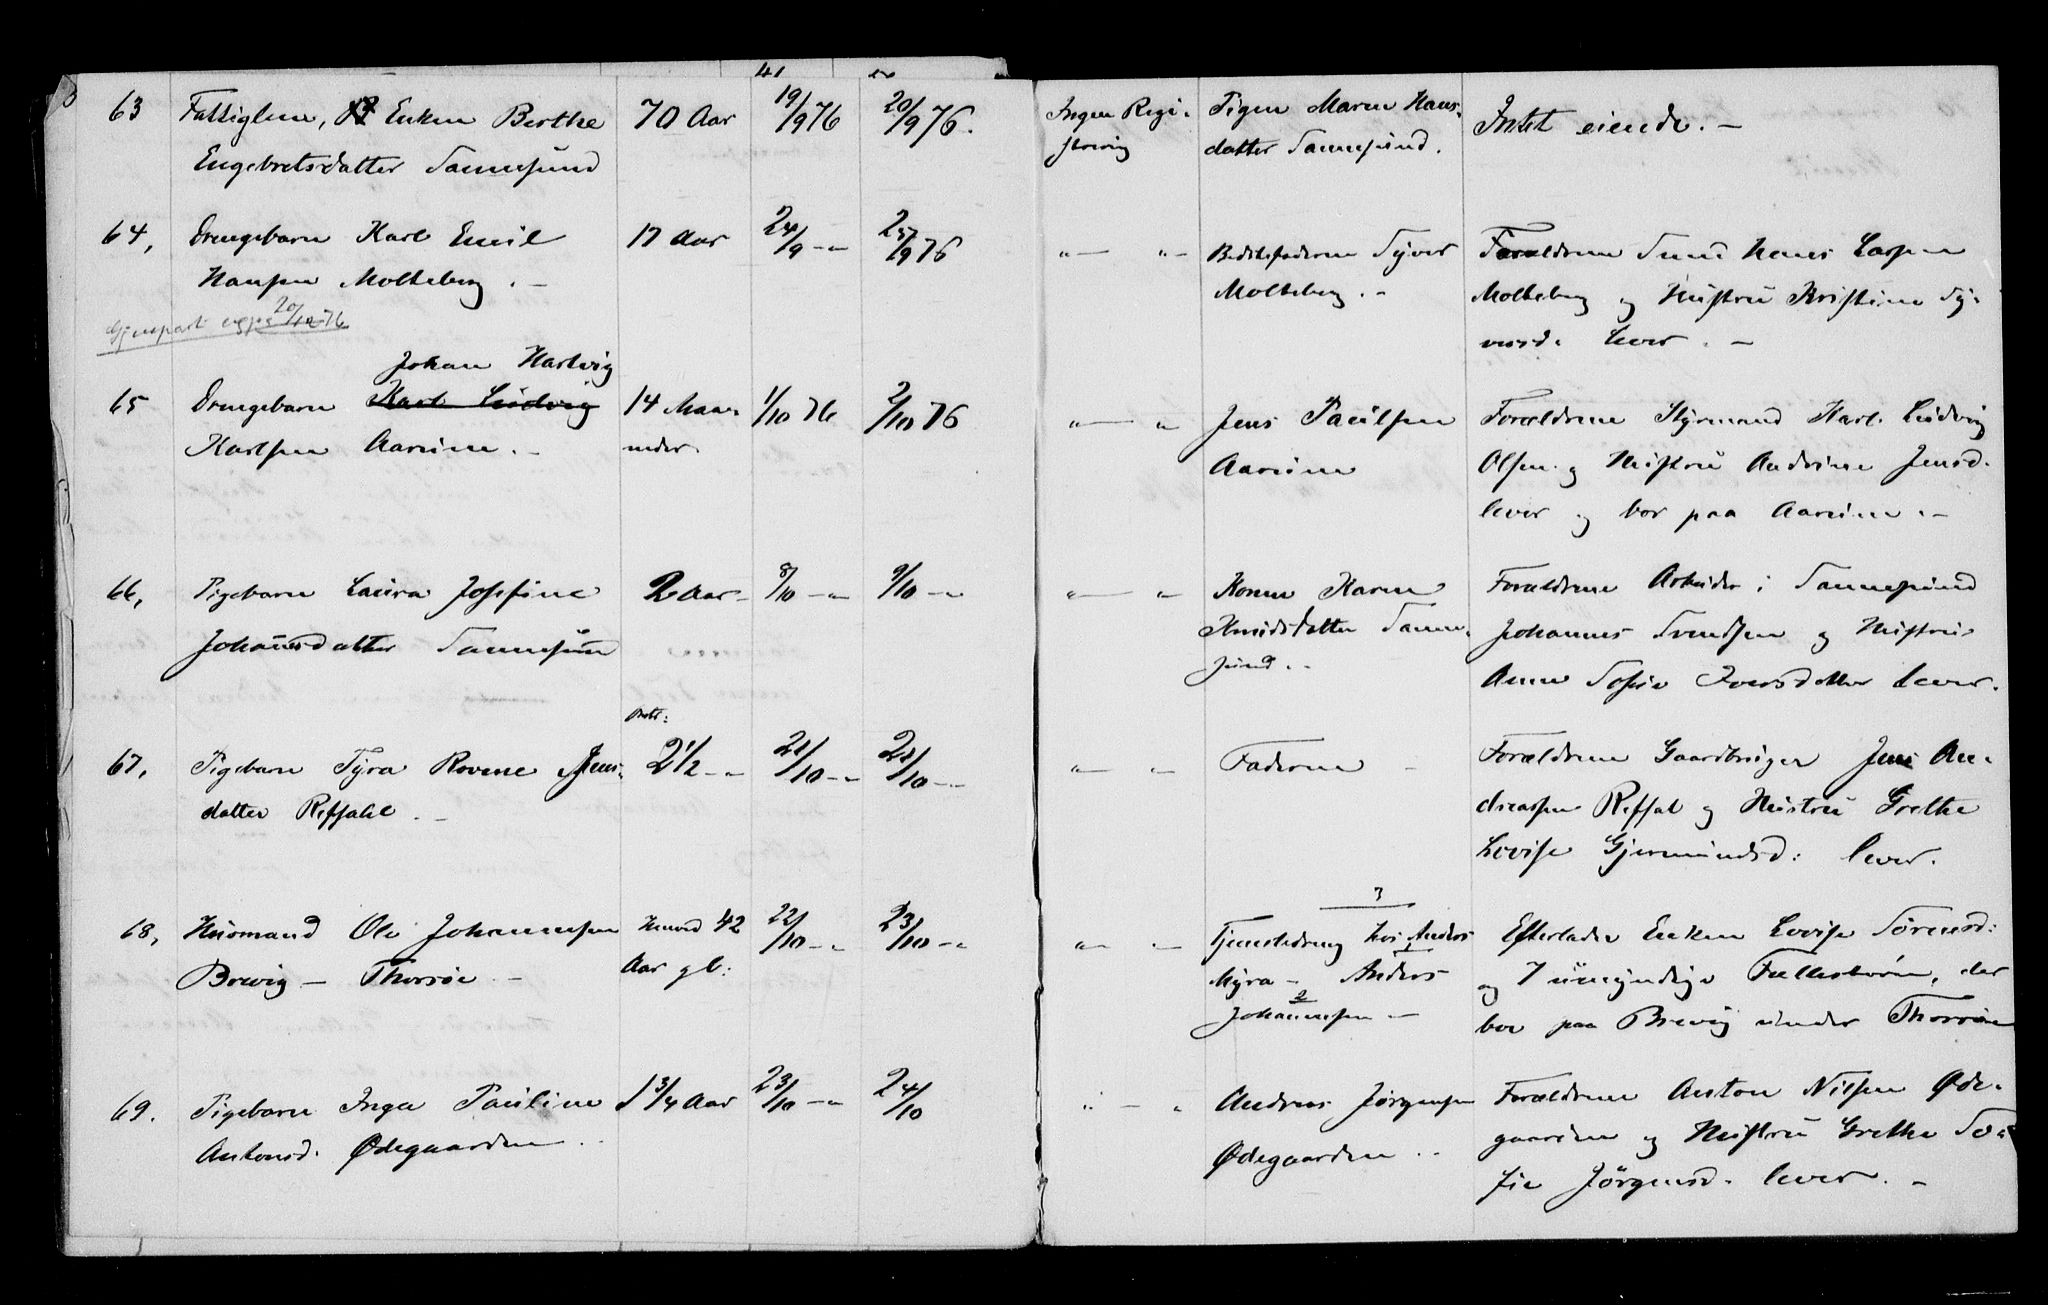 63 Fattiglem, Enken Berthe 70 Aar 19/9 76 20/9 76. Ingen Regi- Pigen Maren Hans- Intet eiende. —
Engebretsdatter Sannesund strering datter Sannesund.
64, Drengebarn Karl Emil 17 Aar 24/9 -„- 25/9 76 „— „— Bedstefaderen Syver Forældrene Hans Larsen
Hansen Molteberg. — Molteberg. - Molteberg og Hustru Kristine Sy-
Gjenpart 20/10 76 versd. lever. —
Johan Hartvig
65 Drengebarn Karl Ludvig 14 Maa- 1/10 76 2/10 76 „— „ Jens Paulsen Forældrene Styrmand Karl Ludvig
Karlsen Aarum. - neder Aarum Olsen og Hustru Andrine Jensd.
lever og bor paa Aarum. -
66, Pigebarn Laura Josefine 2 Aar - 8/10 -„ 9/10 -„ „— „ Konen Karen Forældrene Arbeider i Sannesund
Johannesdatter Sannesund Knudsdatter Sanne- Johannes Svendsen og Hustru
sund. - Anne Sofie Iversdatter lever.
67, Pigebarn Tyra Rovene Jens- 2 1/2 -„ 21/10 -„ 22/10 -„ „— „— Faderen — Forældrene Gaardbruger Jens An-
datter Refsahl. - dreassen Refsal og Hustru Grethe
Lovise Gjermundsd: lever.
3
68, Husmand Ole Johannesen Henved 42 22/10 -„ 23/10 -„ „— „— Tjenestedreng hos Anders Efterlader Enken Lovise Sörensd:
Brevig — Thorsøe — Aar gl: Myra — Anders og 7 umyndige Fællesbørn, der
2
Johannesen — bor paa Brevig under Thorsøe
69. Pigebarn Inga Pauline 1 3/4 Aar 23/10 -„ 24/10 „ — „ Andreas Jørgensen Forældrene Anton Nilsen Øde-
Antonsd. Ødegaarden.. Ødegaarden.. gaarden og Hustru Grethe So-
fie Jörgensd. lever. —